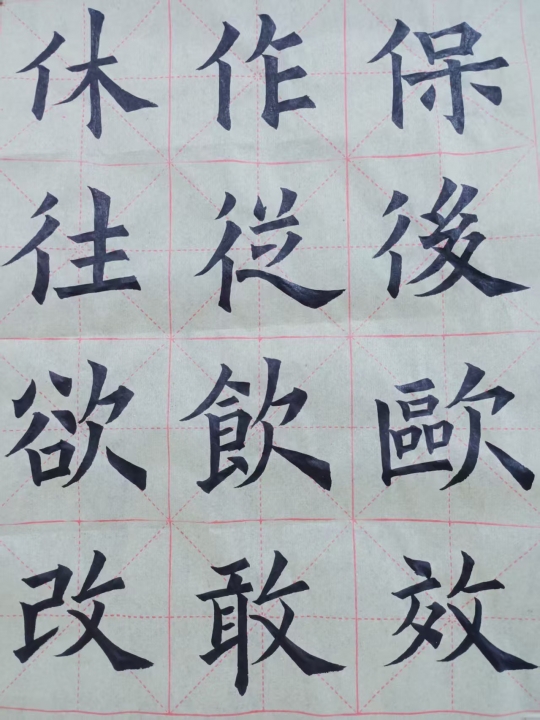 休作保
往從後
欲飲歐
改敢效